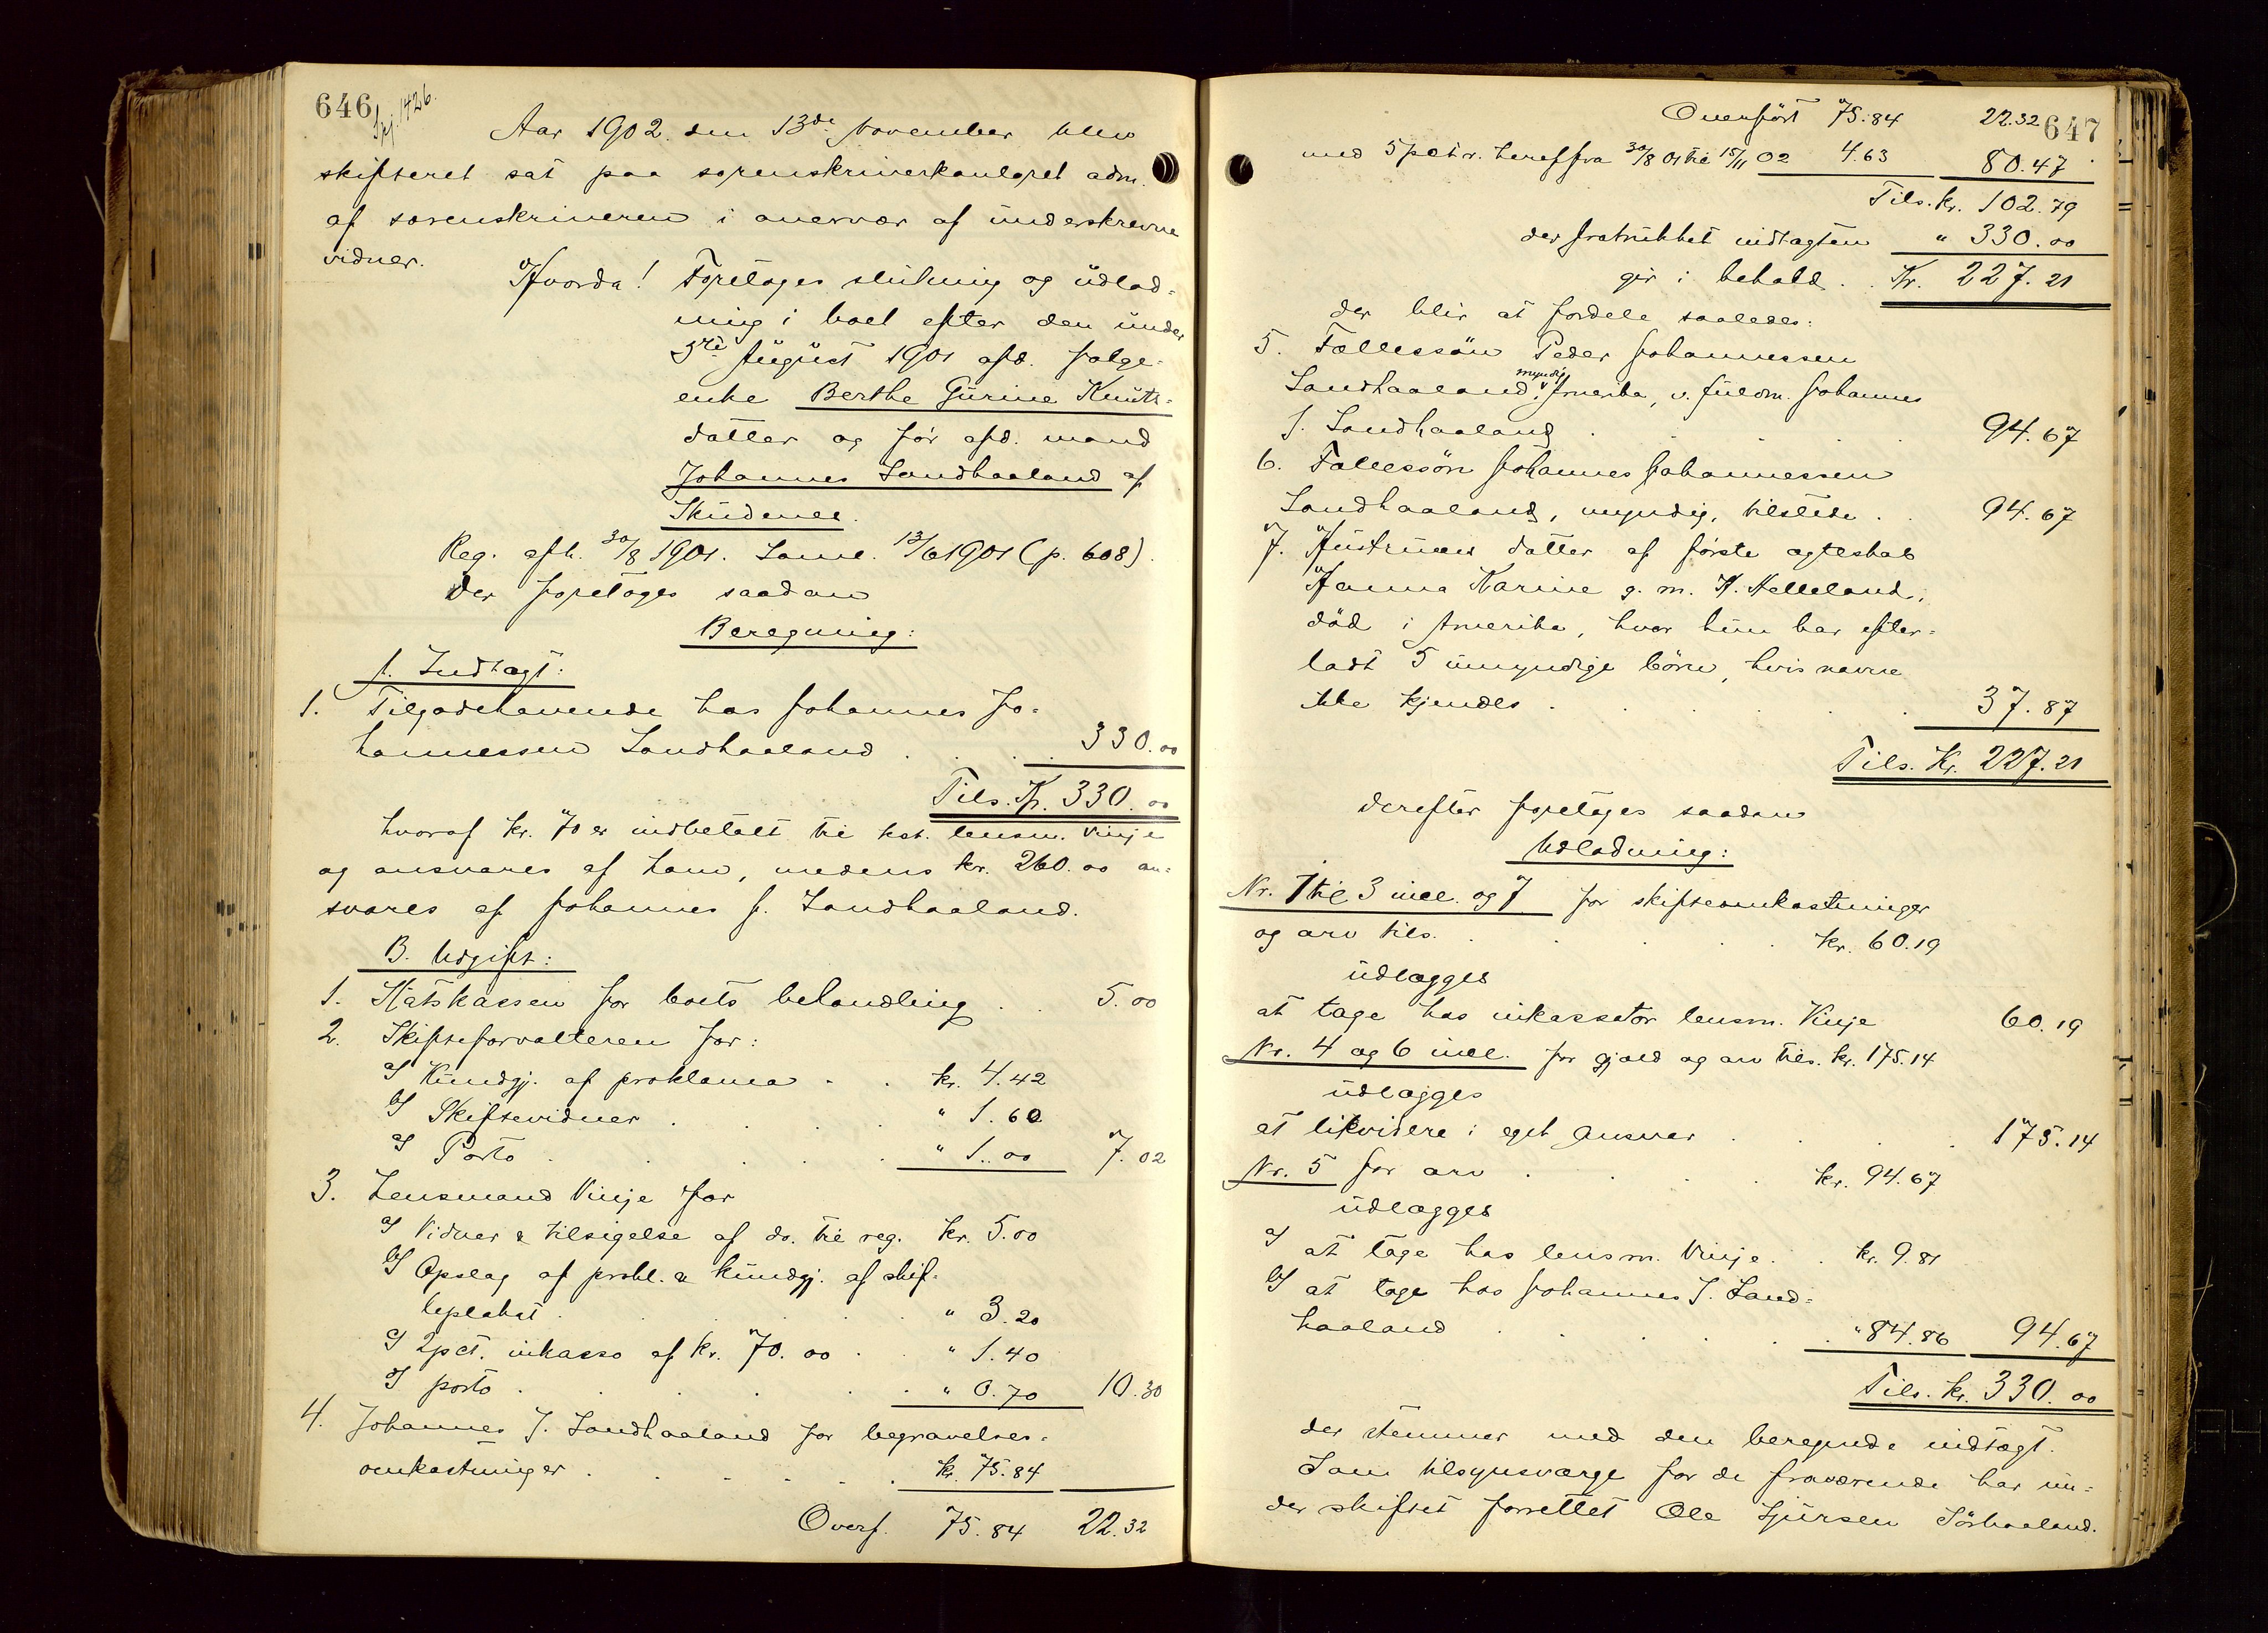 646
Spj. 1426.
Aar 1902 den 13de November blev
skifteret sat paa sorenskriverkontoret adm.
af sorenskriveren i overvær af underskrevne
vidner.
Hvorda! Foretages slutning og udlod-
ning i boet efter den under
5te August 1901 afd. folge-
enke Berthe Gurine Knuts-
datter og før afd. mand
Johannes Sandhaaland af
Skudenes.
Reg. afh. 30/8 1901. Saml. 13/6 1901 (p. 608).
Der foretages saadan
Beregning:
A. Indtægt:
1. Tilgodehavende hos Johannes Jo-
hannessen Sandhaaland . . . 330.00
Tils. Kr. 330.00
hvoraf kr. 70 er indbetalt til kst. lensm. Vinje
og ansvares af ham, medens kr. 260.00 an-
svares af Johannes J. Sandhaaland.
B. Udgift:
1. Statskassen for boets behandling . . 5.00
2. Skifteforvalteren for:
a) Kundgj. af proklama . . kr. 4.42
b) Skiftevidner . . . . " 1.60
c) Porto . . . . " 1.00 7.02
3. Lensmand Vinje for
a) Vidner & tilsigelse af do. til reg. kr. 5.00
b) Opslag af prokl. & kundgj. af skif-
teplakat . . . . " 3.20
c) 2 pct. inkasso af kr. 70.00 . . " 1.40
d) porto . . . . . " 0.70 10.30
4. Johannes J. Sandhaaland for begravelses-
omkostninger . . . . . kr. 75.84
Overf. 75.84 22.32
647
Overført 75.84 22.32
med 5 pct. r. heraf fra 30/8 01 til 15/11 02 4.63 80.47
Tils. kr. 102.79
der fratrukket indtægten " 330.00
gir i behold . . Kr. 227.21
der blir at fordele saaledes:
5. Fællessøn Peder Johannessen
Sandhaaland, myndig, Amerika, v. fuldm. Johannes
J. Sandhaaland . . . . 94.67
6. Fællessøn Johannes Johannessen
Sandhaaland, myndig, tilstede . . 94.67
7. Hustruens datter af første ægteskab
Hanna Karine g. m. K. Helleland,
død i Amerika, hvor hun har efter-
ladt 5 umyndige børn, hvis navne
ikke kjendes . . . . . 37.87
Tils. Kr. 227.21
Derefter foretages saadan
Udlodning:
Nr. 1 til 3 incl. og 7 for skifteomkostninger
og arv tils. . . . . kr. 60.19
udlægges
at tage hos inkassator lensm. Vinje 60.19
Nr. 4 og 6 incl. for gjæld og arv tils. kr. 175.14
udlægges
at likvidere i eget ansvar . . . . 175.14
Nr. 5 for arv . . . . kr. 94.67
udlægges
a) at tage hos lensm. Vinje . . kr. 9.81
b) at tage hos Johannes J. Sand-
haaland . . . . . " 84.86 94.67
Tils. kr. 330.00
der stemmer med den beregnede indtægt.
Som tilsynsværge for de fraværende har un-
der skiftet forrettet Ole Sjursen Sørhaaland.